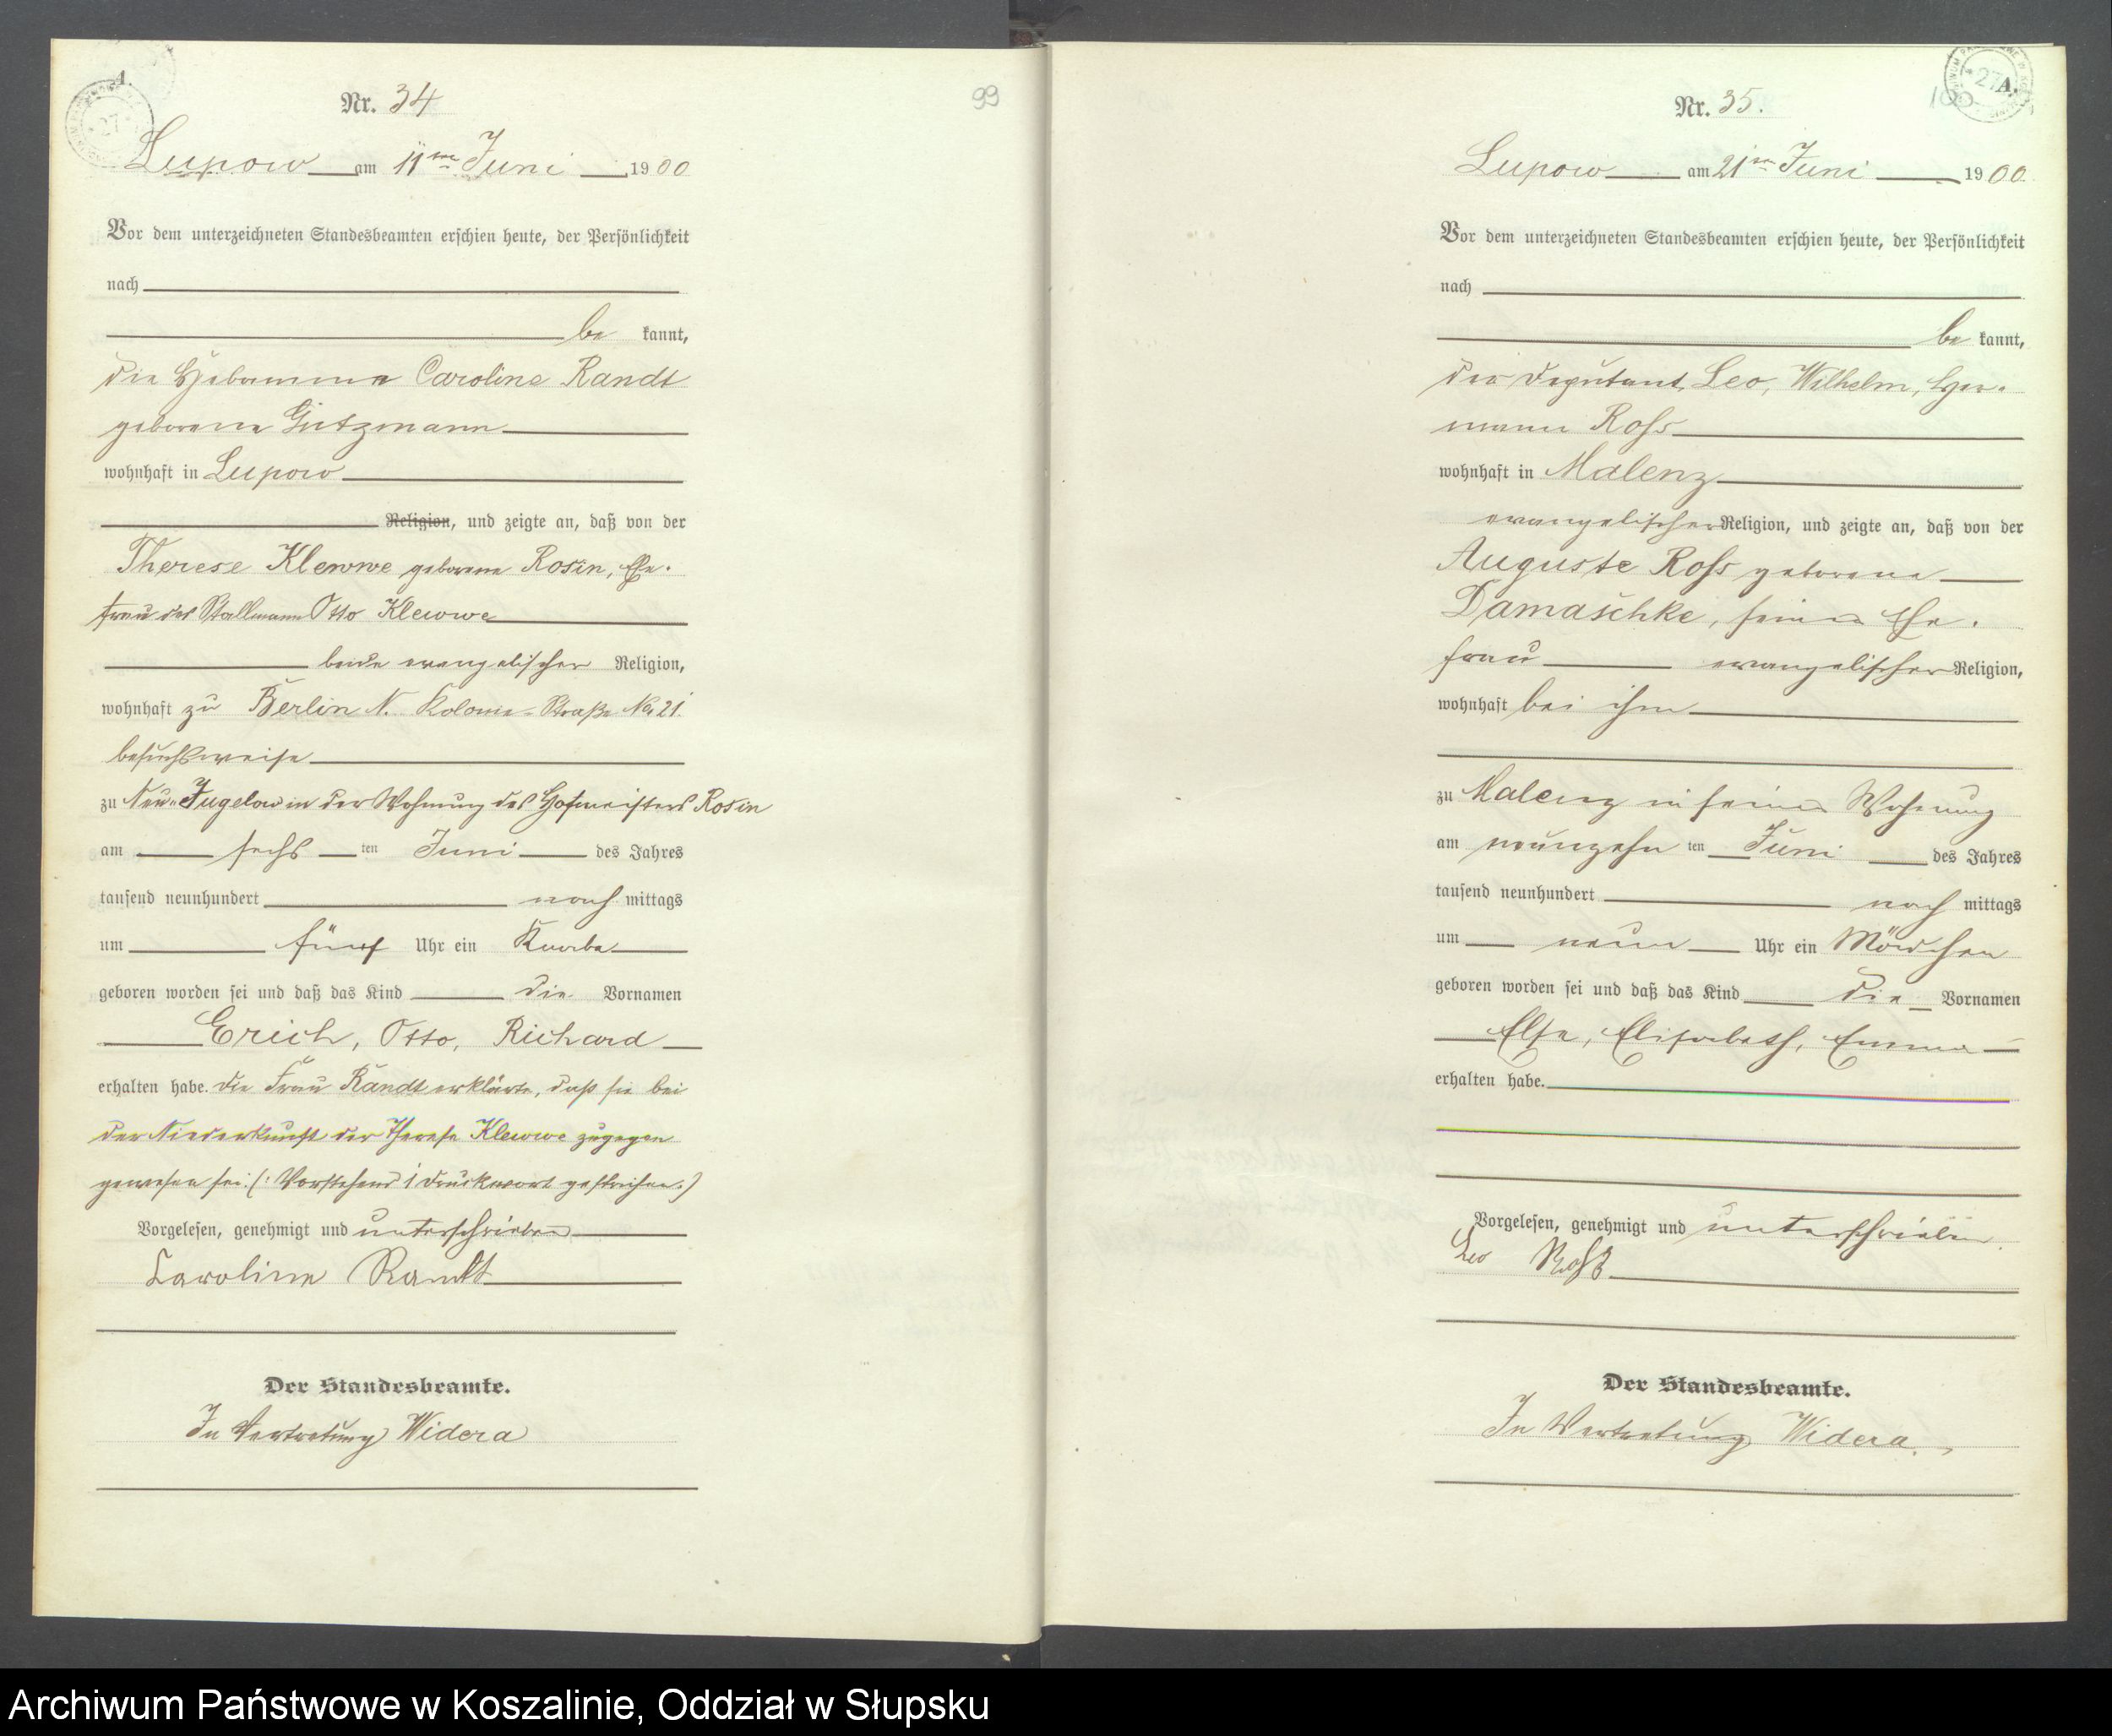 A.
Nr. 34
Lupow am 11ten Juni 1900
Vor dem unterzeichneten Standesbeamten erschien heute, der Persönlichkeit
nach
be kannt,
die Hebamme Caroline Randt
geborene Gützmann
wohnhaft in Lupow
Religion, und zeigte an, daß von der
Therese Klewwe geborene Rosin, Ehe-
frau des Stallmann Otto Klewwe
beide evangelischer Religion,
wohnhaft zu Berlin N. Kolonie-Straße No 21.
besuchsweise
zu Neu-Jugelow in der Wohnung des Hofmeisters Rosin
am sechs ten Juni des Jahres
tausend neunhundert nach mittags
um fünf Uhr ein Knabe
geboren worden sei und daß das Kind die Vornamen
Erich, Otto, Richard
erhalten habe. Die Frau Randt erklärte, daß sie bei
der Niederkunft der Therese Klewwe zugegen
gewesen sei. (: Vorstehend 1 Druckwort gestrichen.)
Vorgelesen, genehmigt und unterschrieben
Caroline Randt
Der Standesbeamte.
In Vertretung Widera
99
A.
27
100
Nr. 35.
Lupow am 21ten Juni 1900.
Vor dem unterzeichneten Standesbeamten erschien heute, der Persönlichkeit
nach
be kannt,
der Deputant Leo, Wilhelm, Her-
mann Ross
wohnhaft in Malenz
evangelischer Religion, und zeigte an, daß von der
Auguste Ross geborene
Damaschke, seiner Ehe-
frau evangelischer Religion,
wohnhaft bei ihm
zu Malenz in seiner Wohnung
am neunzehn ten Juni des Jahres
tausend neunhundert nach mittags
um neun Uhr ein Mädchen
geboren worden sei und daß das Kind die Vornamen
Else, Elisabeth, Emma
erhalten habe.
Vorgelesen, genehmigt und unterschrieben
Leo Roß
Der Standesbeamte.
In Vertretung Widera.
Archiwum Państwowe w Koszalinie, Oddział w Słupsku